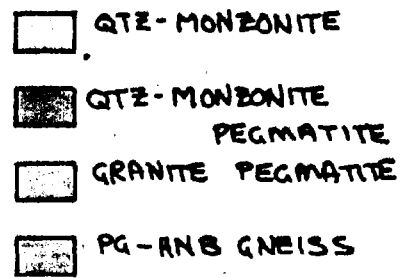 QTZ-MONZONITE
QTZ-MONZONITE
PEGMATITE
GRANITE PEGMATITE
PG-HNB GNEISS